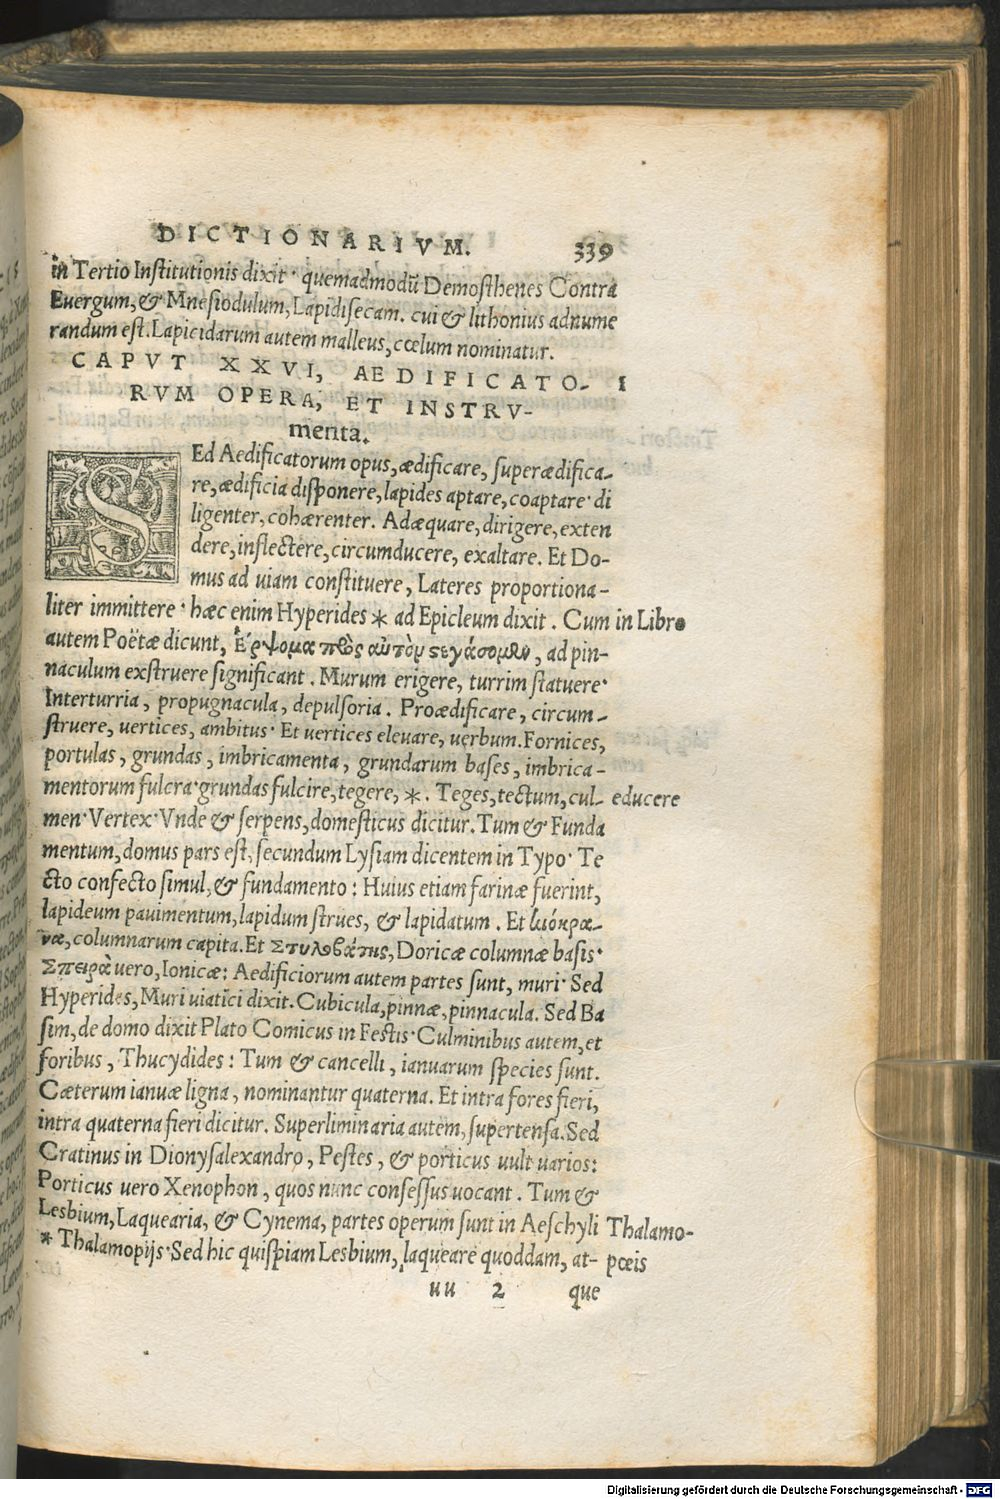 DICTIONARIVM. 339
in Tertio Institutionis dixit· quemadmodũ Demosthenes Contra
Euergum, & Mnesiodulum, Lapidisecam. cui & lithonius adnume
randum est. Lapicidarum autem malleus, cœlum nominatur.
CAPVT XXVI, AEDIFICATO- I
RVM OPERA, ET INSTRV-
menta.
SEd Aedificatorum opus, ædificare, superædifica-
re, ædificia disponere, lapides aptare, coaptare· di
ligenter, cohærenter. Adæquare, dirigere, exten
dere, inflectere, circumducere, exaltare. Et Do-
mus ad uiam constituere, Lateres proportiona-
liter immittere· hæc enim Hyperides * ad Epicleum dixit. Cum in Libro
autem Poëtæ dicunt, αὐτὸν, ad pin-
naculum exstruere significant. Murum erigere, turrim statuere·
Interturria, propugnacula, depulsoria. Proædificare, circum-
struere, uertices, ambitus· Et uertices eleuare, uerbum. Fornices,
portulas, grundas, imbricamenta, grundarum bases, imbrica-
mentorum fulcra· grundas fulcire, tegere, *. Teges, tectum, cul- educere
men· Vertex· Vnde & serpens, domesticus dicitur. Tum & Funda
mentum, domus pars est, secundum Lysiam dicentem in Typo· Te
cto confecto simul, & fundamento: Huius etiam farinæ fuerint,
lapideum pauimentum, lapidum strues, & lapidatum. Et κιόκρα-
να, columnarum capita. Et Στυλοβάτης, Doricæ columnæ basis·
Σπειρὰ uero, Ionicæ: Aedificiorum autem partes sunt, muri· Sed
Hyperides, Muri uiatici dixit. Cubicula, pinnæ, pinnacula. Sed Ba
sim, de domo dixit Plato Comicus in Festis· Culminibus autem, et
foribus, Thucydides: Tum & cancelli, ianuarum species sunt.
Cæterum ianuæ ligna, nominantur quaterna. Et intra fores fieri,
intra quaterna fieri dicitur. Superliminaria autem, supertensa. Sed
Cratinus in Dionysalexandro, Pestes, & porticus uult uarios:
Porticus uero Xenophon, quos nunc consessus uocant. Tum &
Lesbium, Laquearia, & Cynema, partes operum sunt in Aeschyli Thalamo-
* Thalamopijs· Sed hic quispiam Lesbium, laqueare quoddam, at- pœis
uu 2 que
Digitalisierung gefördert durch die Deutsche Forschungsgemeinschaft - DFG